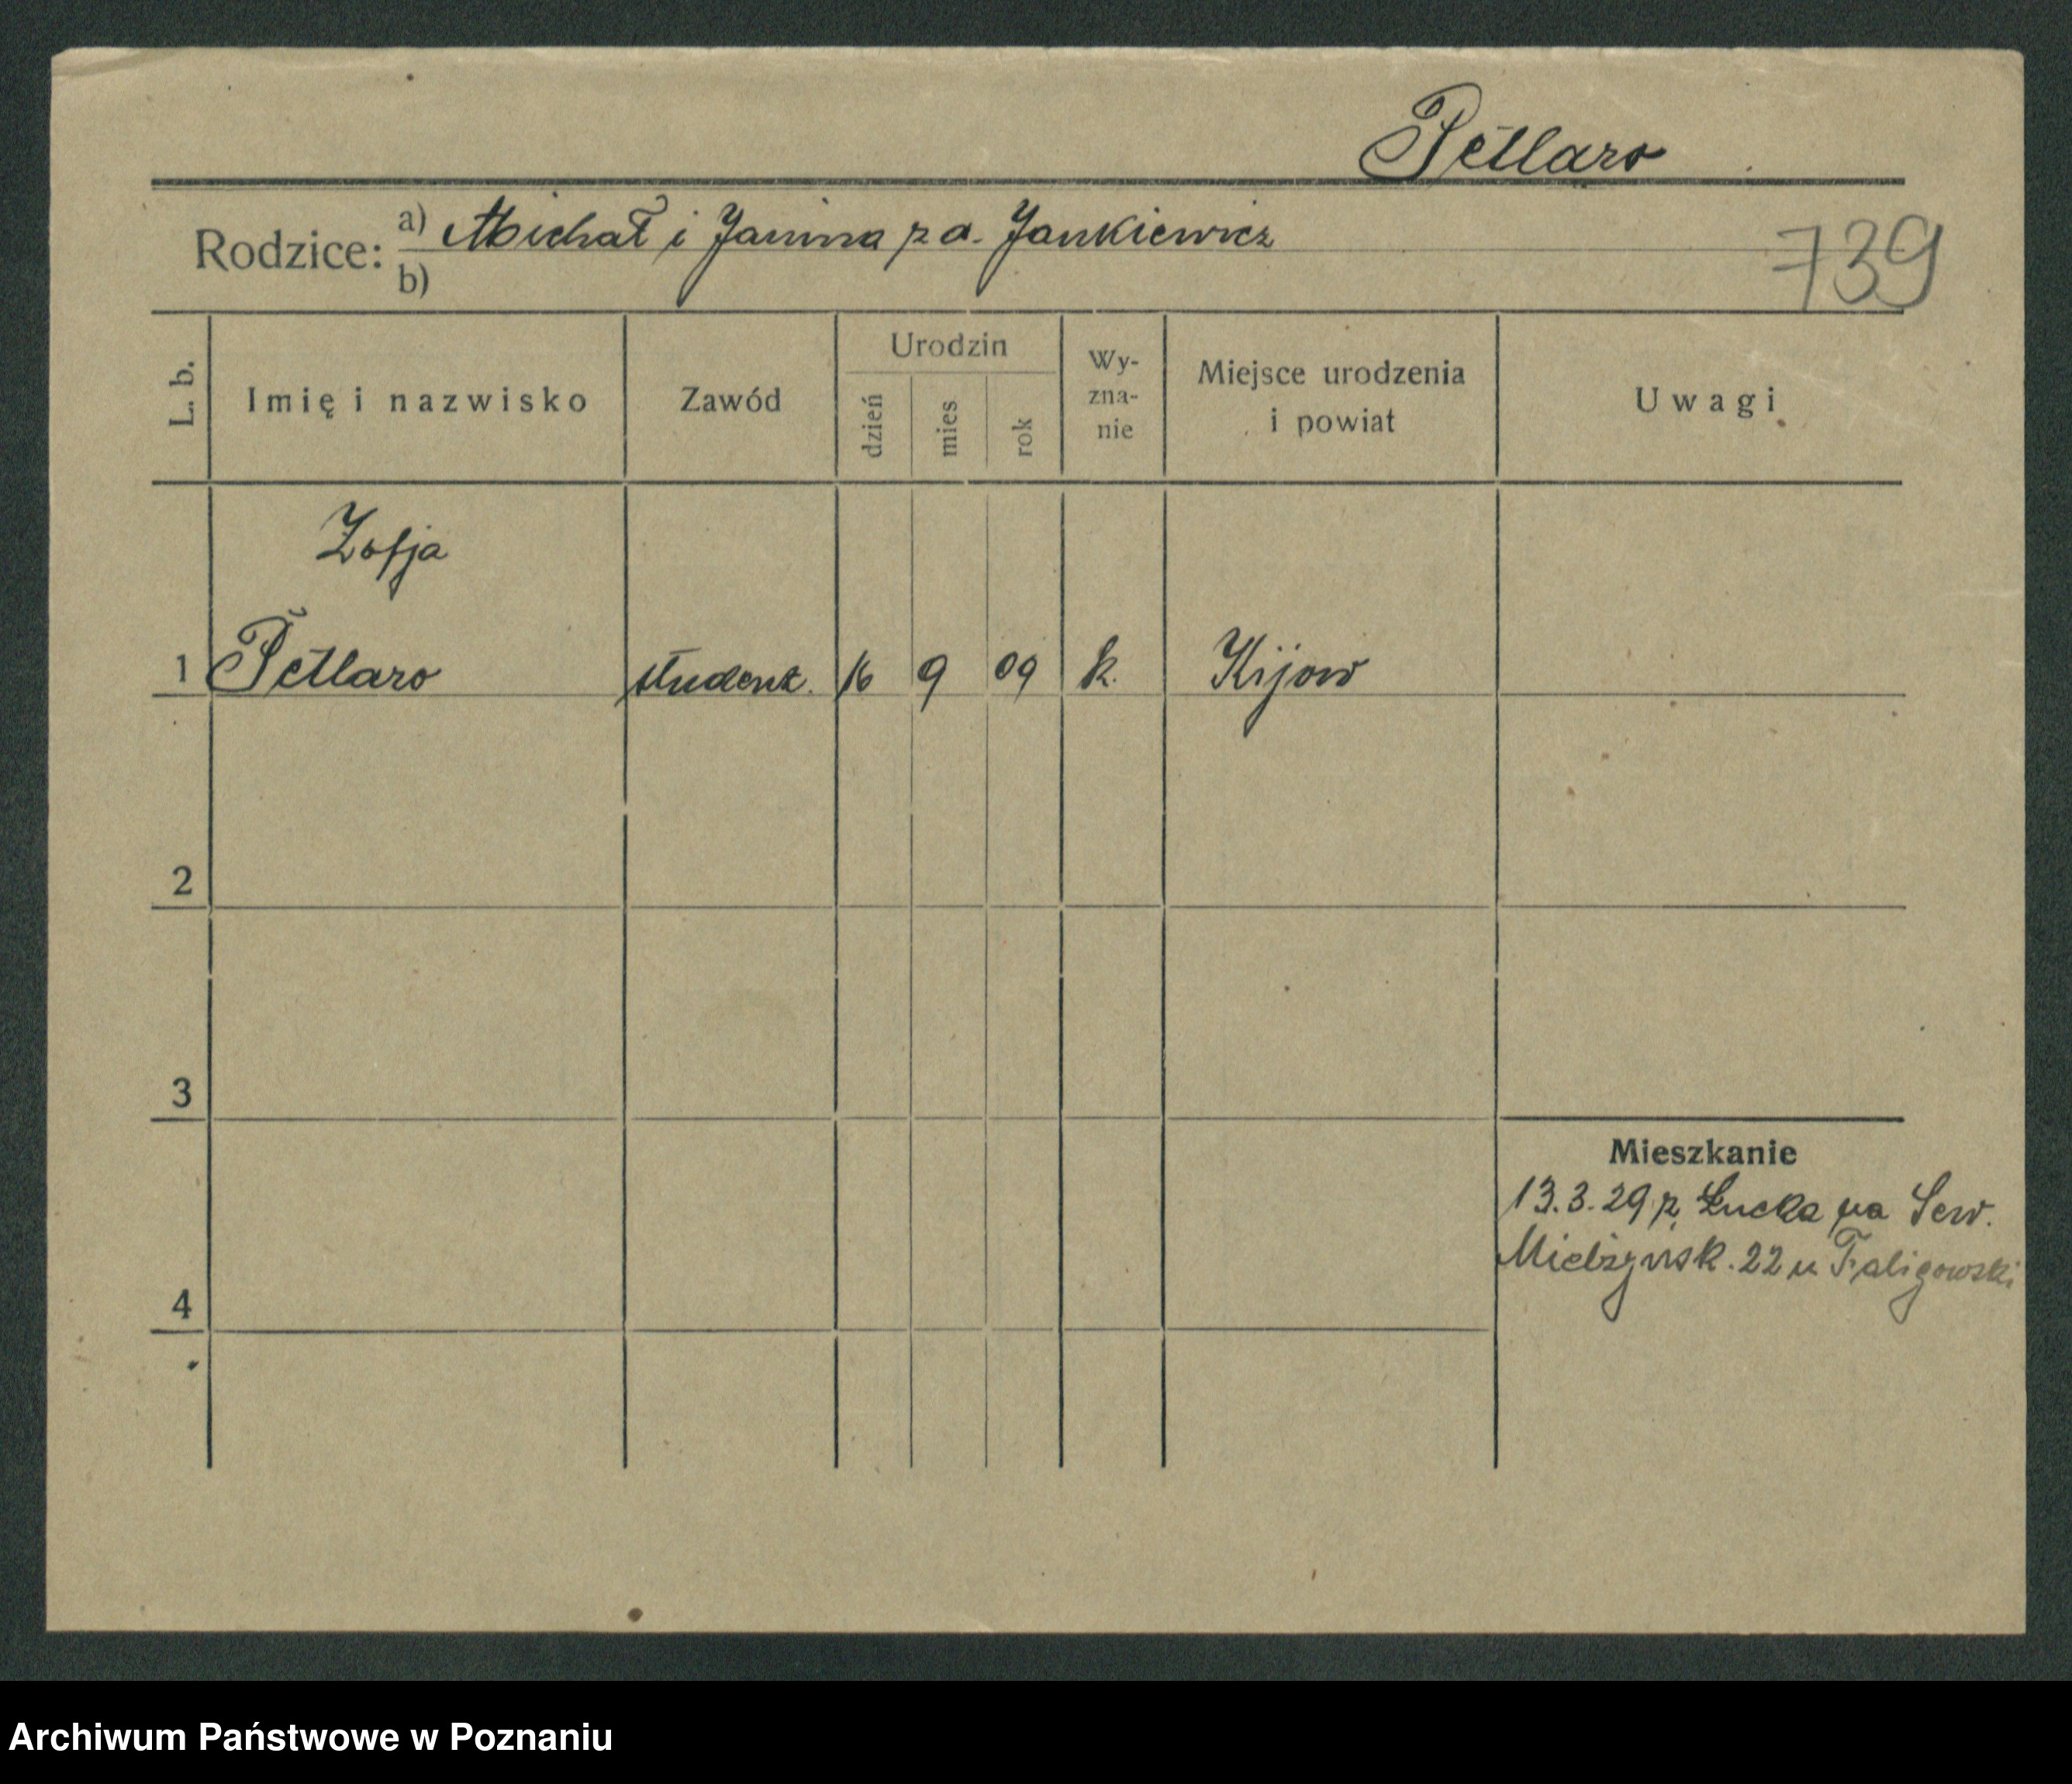 Petlaro
Rodzice: a) Michał i Janina z d. Jankiewicz
b)
739
L. b. Imię i nazwisko Zawód Urodzin dzień mies rok Wy-zna-nie Miejsce urodzenia i powiat Uwagi
Zofja
1 Petlaro student. 16 9 09 k. Kijow
2
3
Mieszkanie
13.3.29 z Łucka na Sew.
Mielżyńsk. 22 u Faligowski
4
Archiwum Państwowe w Poznaniu